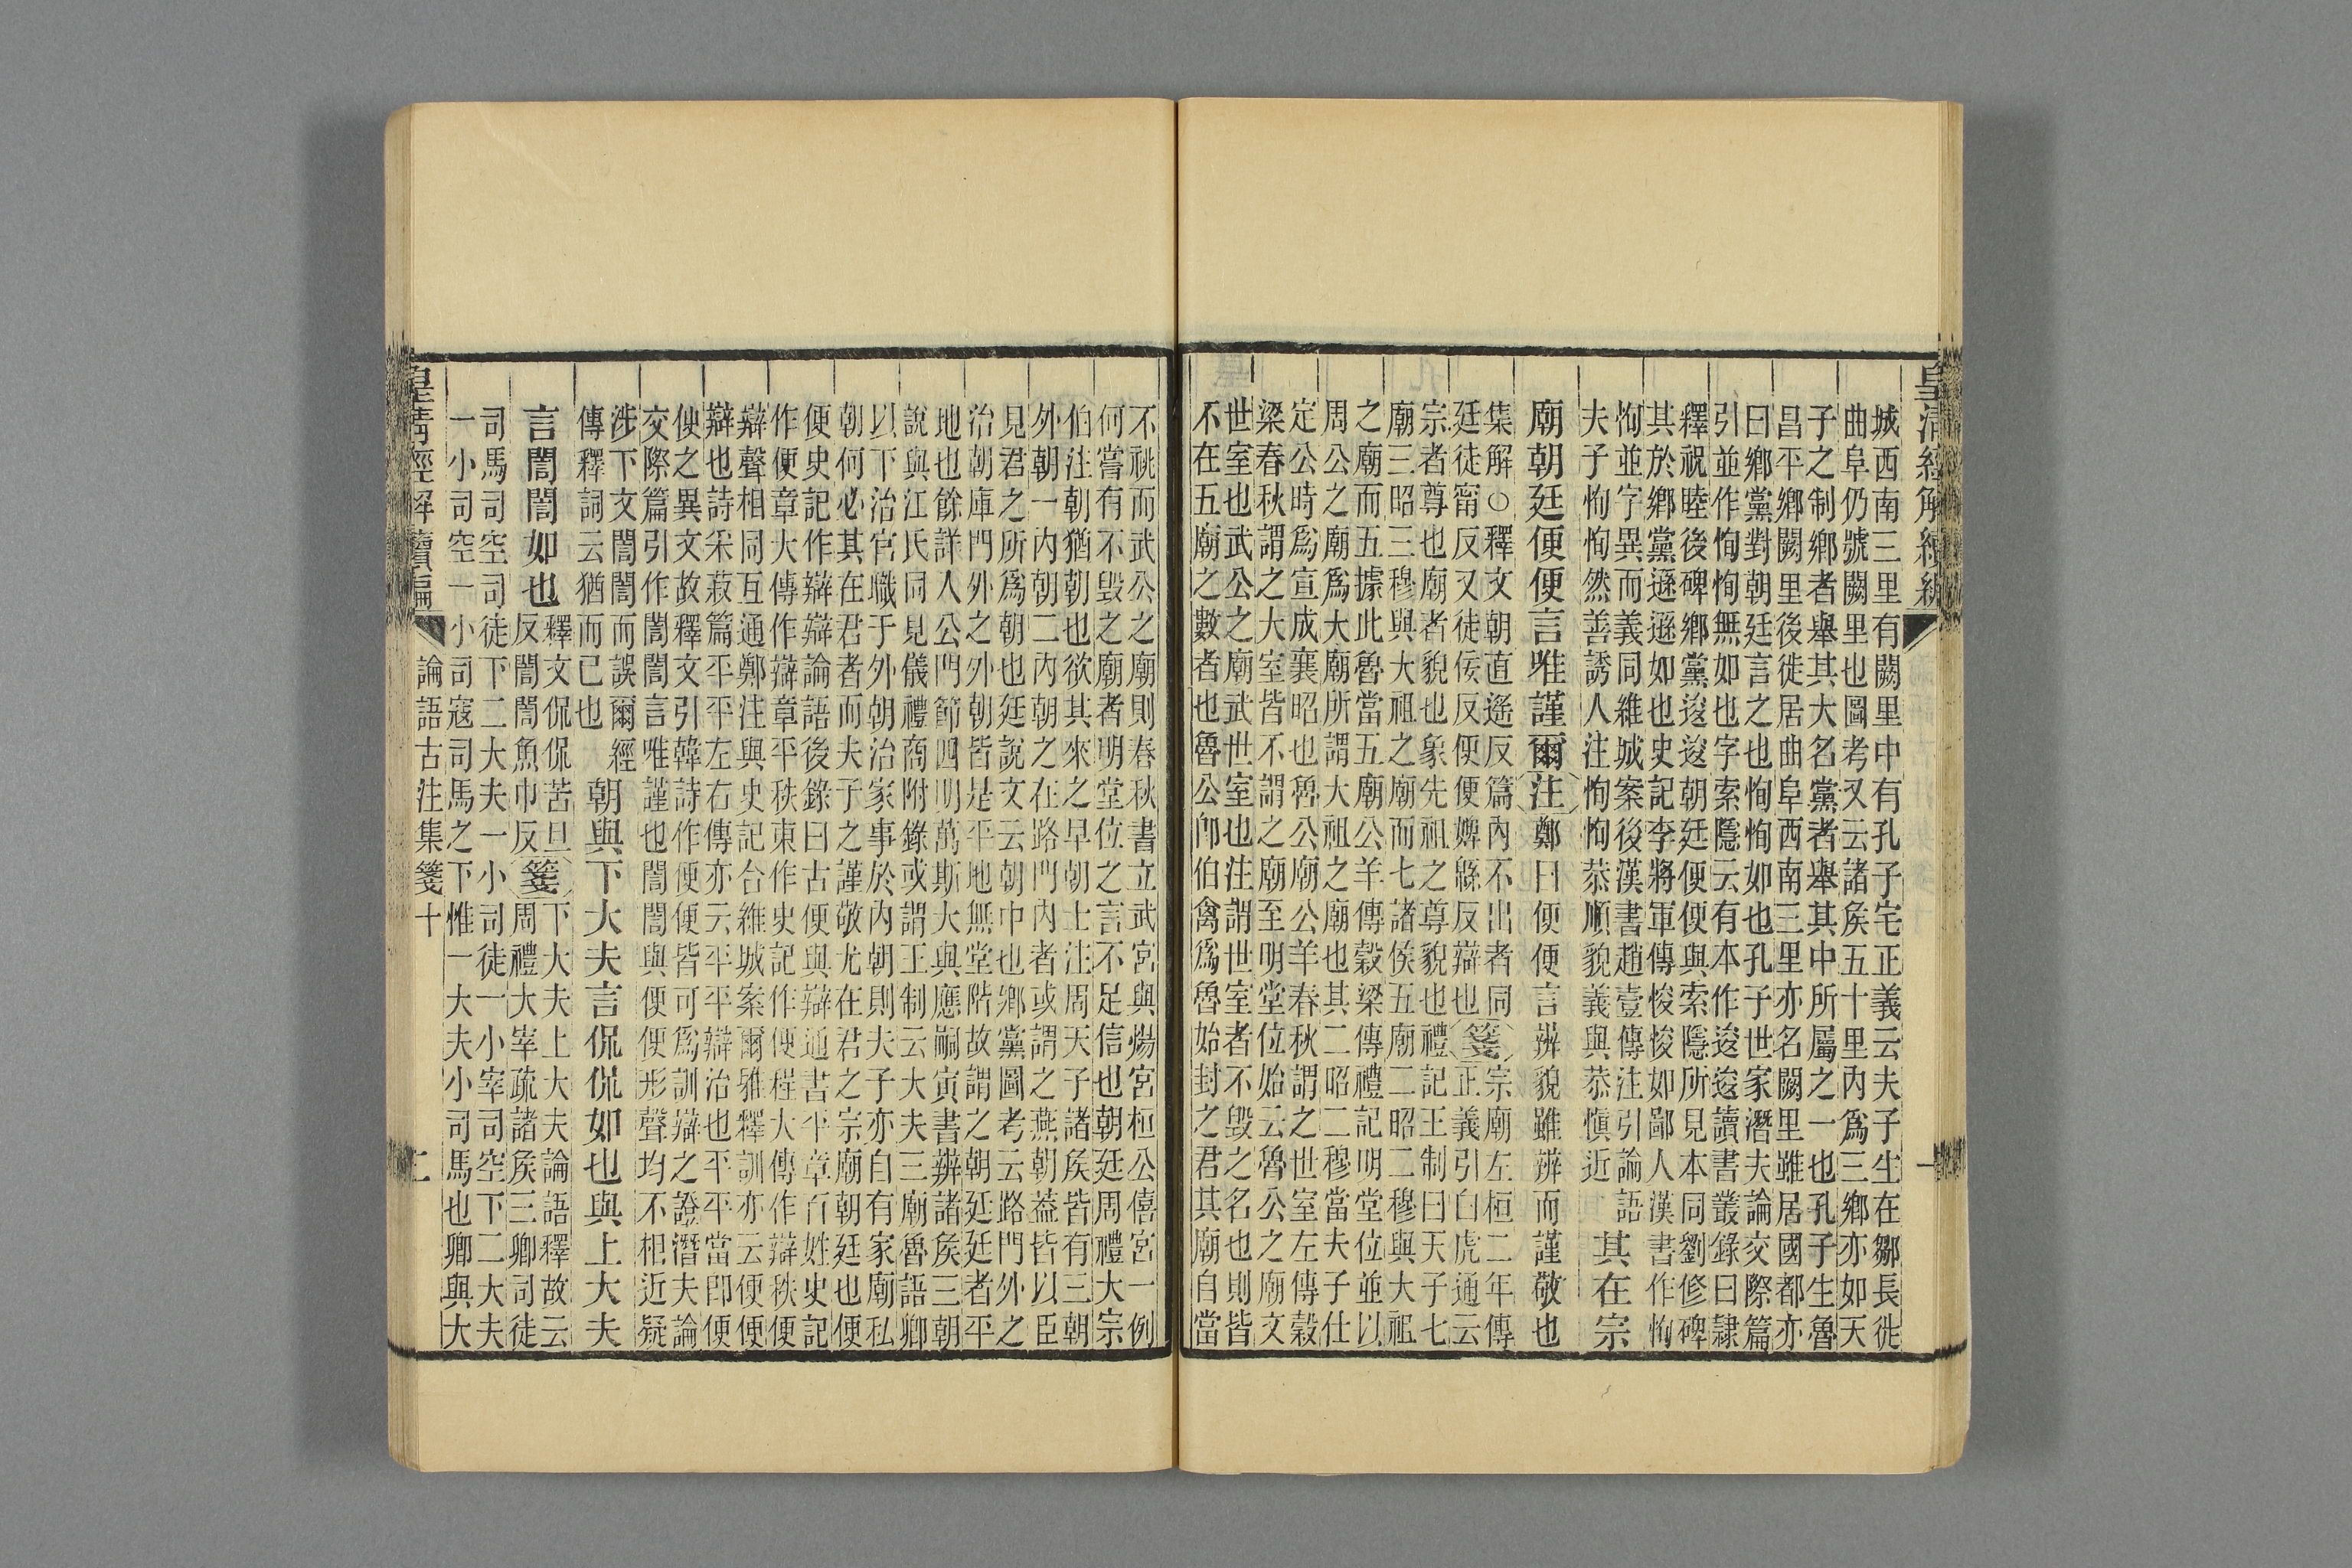 皇清經解續編 一
城西南三里有闕里中有孔子宅正義云夫子生在鄒長徙
曲阜仍號闕里也圖考又云諸矦五十里內爲三鄉亦如天
子之制鄉者舉其大名黨者舉其中所屬之一也孔子生魯
昌平鄉闕里後徙居曲阜西南三里亦名闕里雖居國都亦
曰鄉黨對朝廷言之也恂恂如也孔子世家潛夫論交際篇
引並作恂恂無如也字索隱云有本作逡逡讀書叢錄曰隸
釋祝睦後碑鄉黨逡逡朝廷便便與索隱所見本同劉修碑
其於鄉黨遜遜如也史記李將軍傳悛悛如鄙人漢書作恂
恂並字異而義同維城案後漢書趙壹傳注引論語
夫子恂恂然善誘人注恂恂恭順貌義與恭慎近
其在宗
廟朝廷便便言唯謹爾注鄭曰便便言辨貌雖辨而謹敬也
集解○釋文朝直遙反篇內不出者同
廷徒甯反又徒佞反便便婢緜反辯也
箋
宗廟左桓二年傳
正義引白虎通云
宗者尊也廟者貌也象先祖之尊貌也禮記王制曰天子七
廟三昭三穆與大祖之廟而七諸侯五廟二昭二穆與大祖
之廟而五據此魯當五廟公羊傳穀梁傳禮記明堂位並以
周公之廟爲大廟所謂大祖之廟也其二昭二穆當夫子仕
定公時爲宣成襄昭也魯公廟公羊春秋謂之世室左傳穀
梁春秋謂之大室皆不謂之廟至明堂位始云魯公之廟文
世室也武公之廟武世室也注謂世室者不毀之名也則皆
不在五廟之數者也魯公卽伯禽爲魯始封之君其廟自當
不祧而武公之廟則春秋書立武宮與煬宮桓公僖宮一例
何嘗有不毀之廟者明堂位之言不足信也朝廷周禮大宗
伯注朝猶朝也欲其來之早朝上注周天子諸矦皆有三朝
外朝一內朝二內朝之在路門內者或謂之燕朝葢皆以臣
見君之所爲朝也廷說文云朝中也鄉黨圖考云路門外之
治朝庫門外之外朝皆是平地無堂階故謂之朝廷廷者平
地也餘詳人公門節四明萬斯大與應嗣寅書辨諸矦三朝
說與江氏同見儀禮商附錄或謂王制云大夫三廟魯語卿
以下治官職于外朝治家事於內朝則夫子亦自有家廟私
朝何必其在君者而夫子之謹敬尤在君之宗廟朝廷也便
便史記作辯辯論語後錄曰古便與辯通書平章百姓史記
作便章大傳作辯章平秩東作史記作便程大傳作辯秩便
辯聲相同互通鄭注與史記合維城案爾雅釋訓亦云便便
辯也詩采菽篇平平左右傳亦云平平辯治也平平當卽便
便之異文故釋文引韓詩作便便皆可爲訓辯之證潛夫論
交際篇引作誾誾言唯謹也誾誾與便便形聲均不相近疑
涉下文誾誾而誤爾經
傳釋詞云猶而已也
朝與下大夫言侃侃如也與上大夫
言誾誾如也
釋文侃侃苦旦
反誾誾魚巾反
箋
下大夫上大夫論語釋故云
周禮大宰疏諸矦三卿司徒
司馬司空司徒下二大夫一小司徒一小宰司空下二大夫
一小司空一小司寇司馬之下惟一大夫小司馬也卿與大
皇清經解續編 論語古注集箋十 二